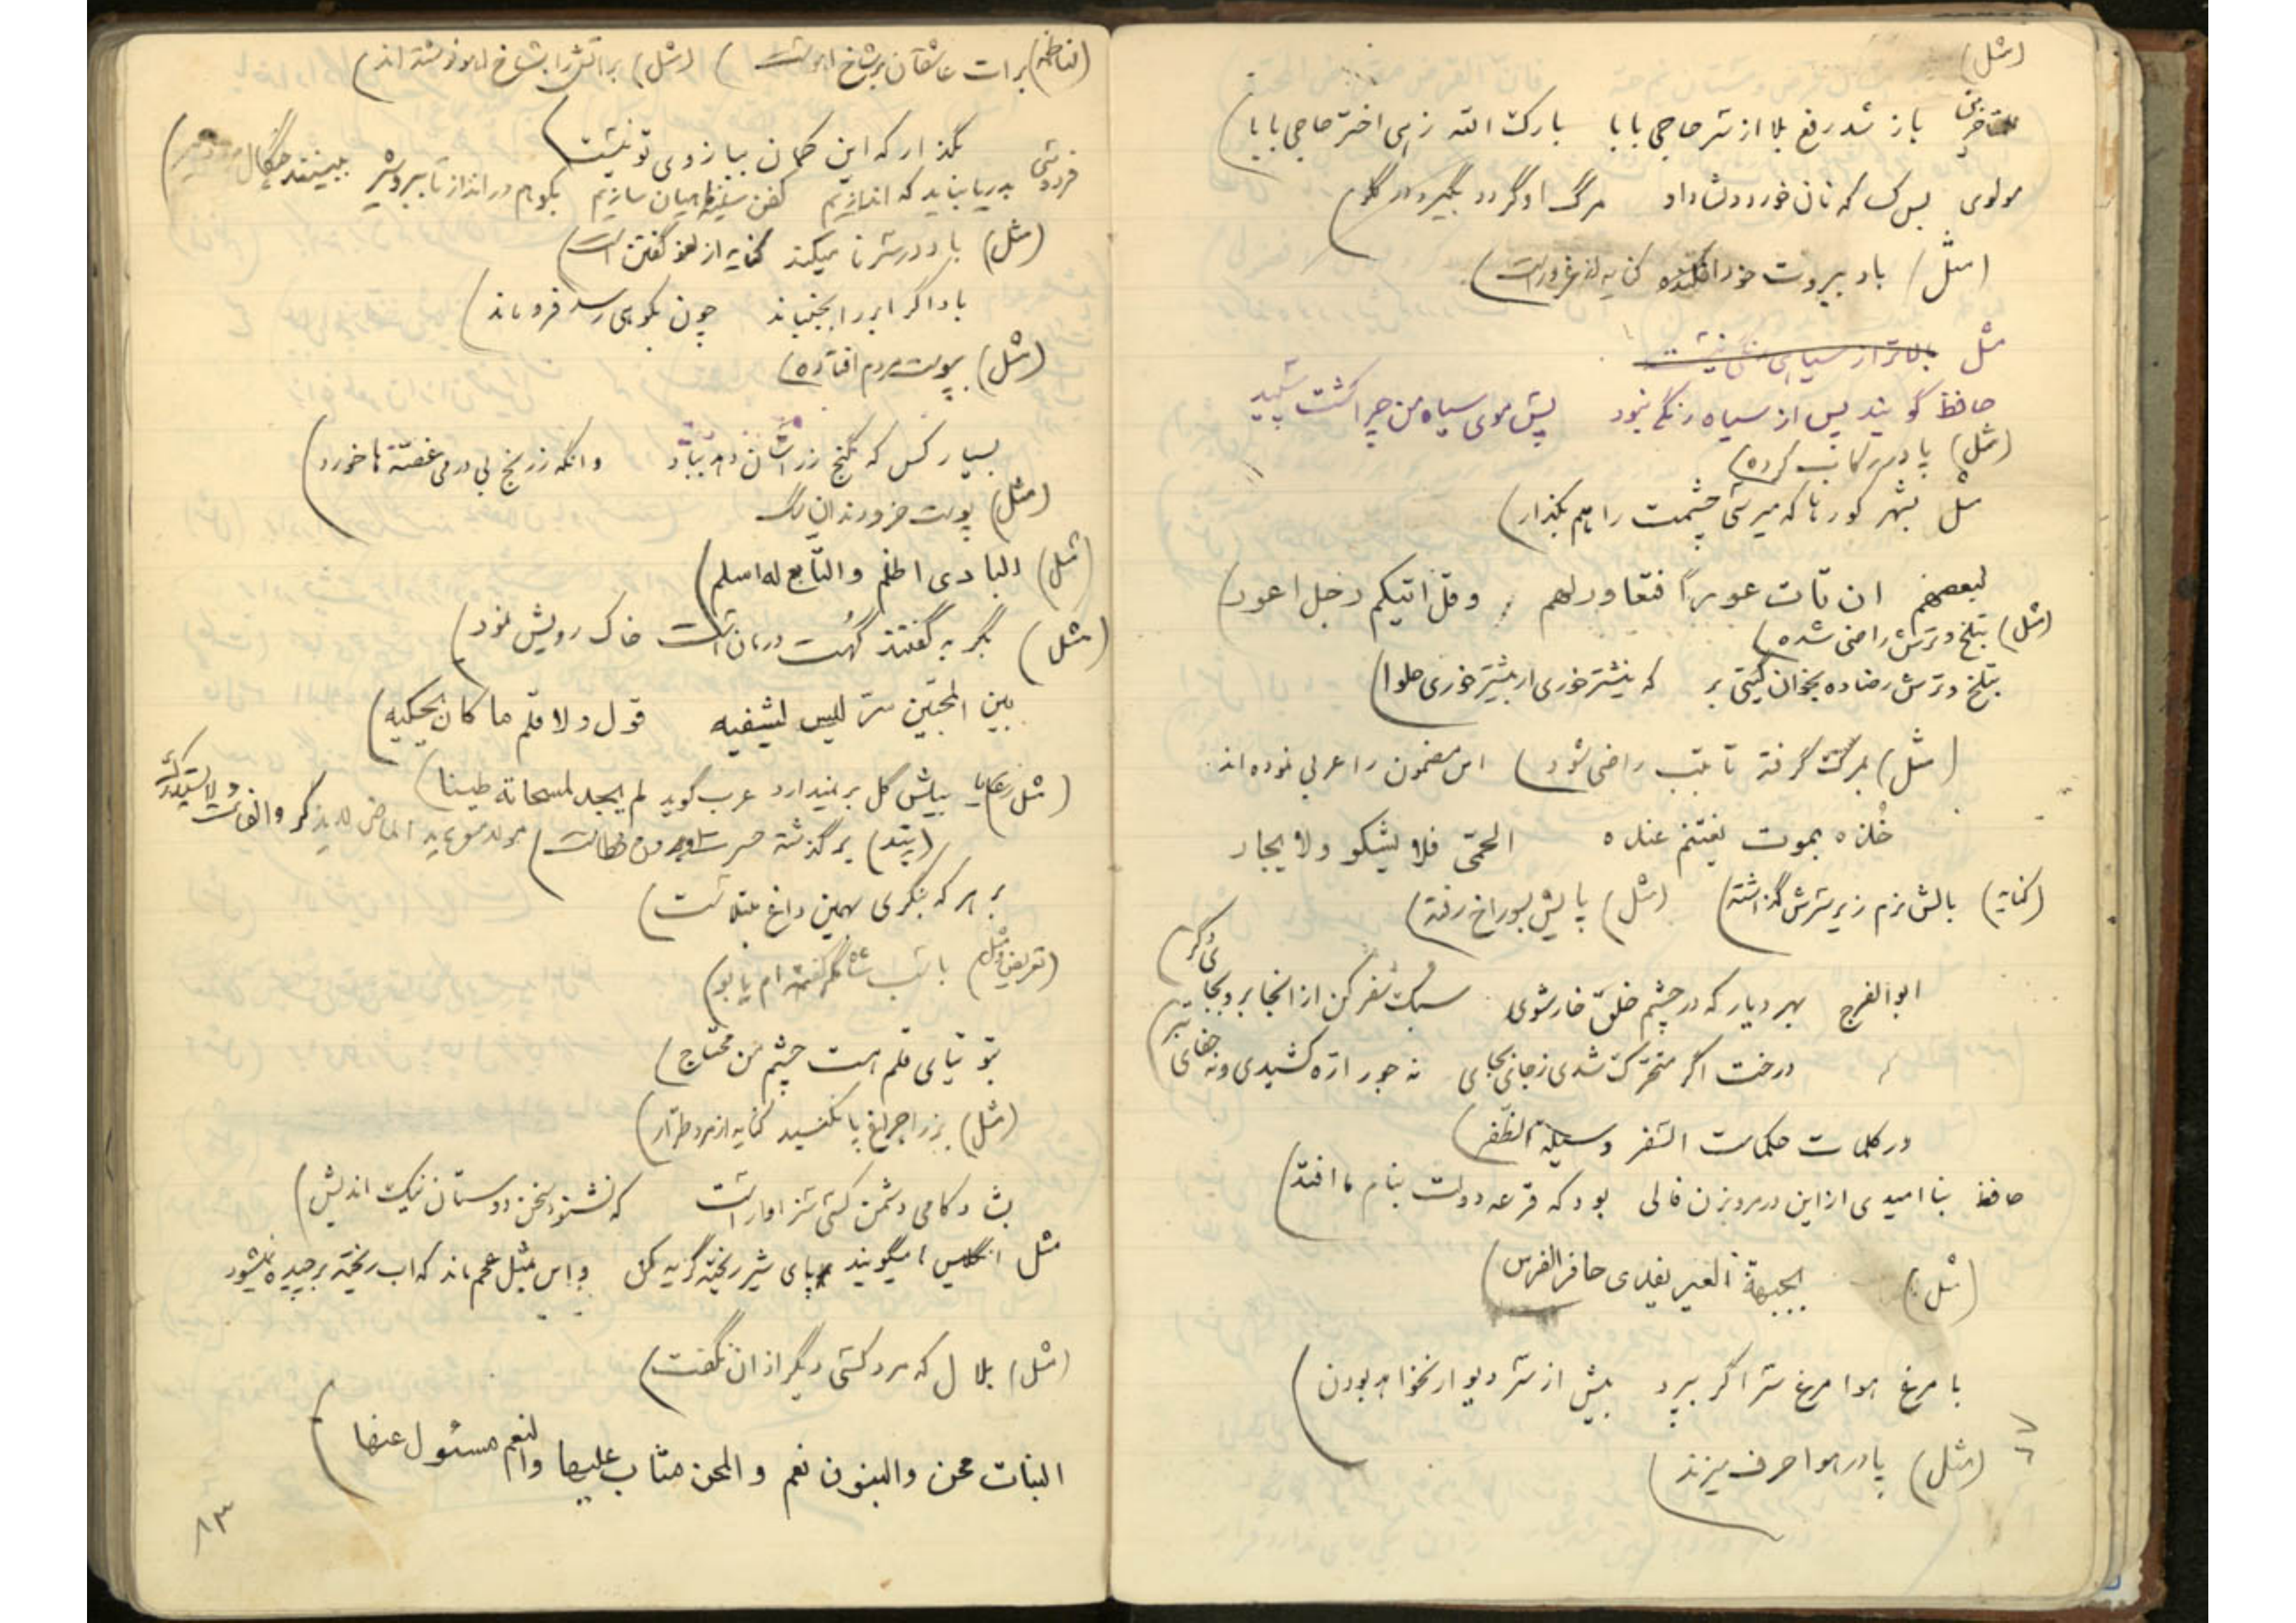 (مثل)
باز شد رفع بلا از سر حاجی بابا بارک الله زهی اختر حاجی بابا
مولوی بس سگ که نان خورد و نشاد او مرگ او گردد بگیرد در گلوم
(مثل) باد ببروت خود افکنده کنایه از غرور است
مثل بالاتر از سیاهی رنگی نیست
حافظ گویند پس از سیاه رنگی نبود پس موی سیاه من چرا گشت سپید
(مثل) پا در رکاب کرده
مثل بشهر کورها که میرسی چشمت را هم بگذار
لبعضهم ان تات عوراً فتعاور لهم وقل اتیکم رجل اعور
(مثل) بتلخ و ترش راضی شده
بتلخ و ترش رضا ده بخوان گیتی بر که نیشتر خوری ار بیشتر خوری حلوا
(مثل) بمرگ گرفته تا بتب راضی شود این مضمون را عربی نموده اند
خذه بموت یغتنم عنده الحمّی فلا یشکو ولا یجار
(کنایه) بالش نرم زیر سرش گذاشته (مثل) پایش بسوراخ رفته
ابوالفرج بهر دیار که در چشم خلق خار شوی سبک سفر کن از انجا برو بجای دگر
درخت اگر متحرک شدی ز جای بجای نه جور ارّه کشیدی و نه جفای تبر
در کلمات حکماست السّفر وسیلة الظّفر
حافظ بنا امیدی از این در مرو بزن فالی بود که قرعه دولت بنام ما افتد
(مثل) بجبهة العیر یفدی حافر الفرس
با مرغ هوا مرغ سرا گر بپرد بیش از سر دیوار نخواهد بودن
(مثل) پا در هوا حرف میزند
برات عاشقان بر شاخ اهوست (مثل) براتش را بشاخ اهو نوشته اند
بگذار که این کمان ببازوی تو نیست
فردوسی بدریا نباید که اندازیم کفن سینه ماهیان سازیم بکوهم در انداز تا ببر و شیر ببینند چنگال
(مثل) باد در سرنا میکند کنایه از لغو گفتن است
باد اگر ابر را بجنباند چون بکوهی رسد فرو ماند
(مثل) بپوست مردم افتاده
بسیار کس که گنج زر وانگه ز رنج بی درمی غصّه ها خورد
(مثل) پوست خر و دندان سگ
(مثل) البادی اظلم والتّابع له اسلم
(مثل) بگربه گفتند گُهت درمان است خاک رویش نمود
بین المحبّین سرّ لیس یشفیه قول ولا قلم ما کان یحکیه
(مثل) بیلش گل بر نمیدارد عرب گوید لم یجد لمسحاته طینا
(پند) بر گذشته حسرت اوردن خطاست الماضی لا یذکر والفائت لا یستدرک
بر هر که بنگری بهمین داغ مبتلاست
با اسب شاه گرفته ام یا بو
بتوتیای قلم هست چشم من محتاج
(مثل) بزرا چراغ پا نکنید کنایه از مرد طرّار
بشاد کامی دشمن کسی سزاوار است که نشنود سخن دوستان نیک اندیش
مثل انگلیس ها میگویند بپای شیر ریخته گریه مکن و این مثل عجم ماند که اب ریخته بر چیده نمیشود
(مثل) بلال که مرد کسی دیگر اذان نگفت
البنات محن والبنون نعم والمحن مثاب علیها والنعم مسئول عنها
۸۳